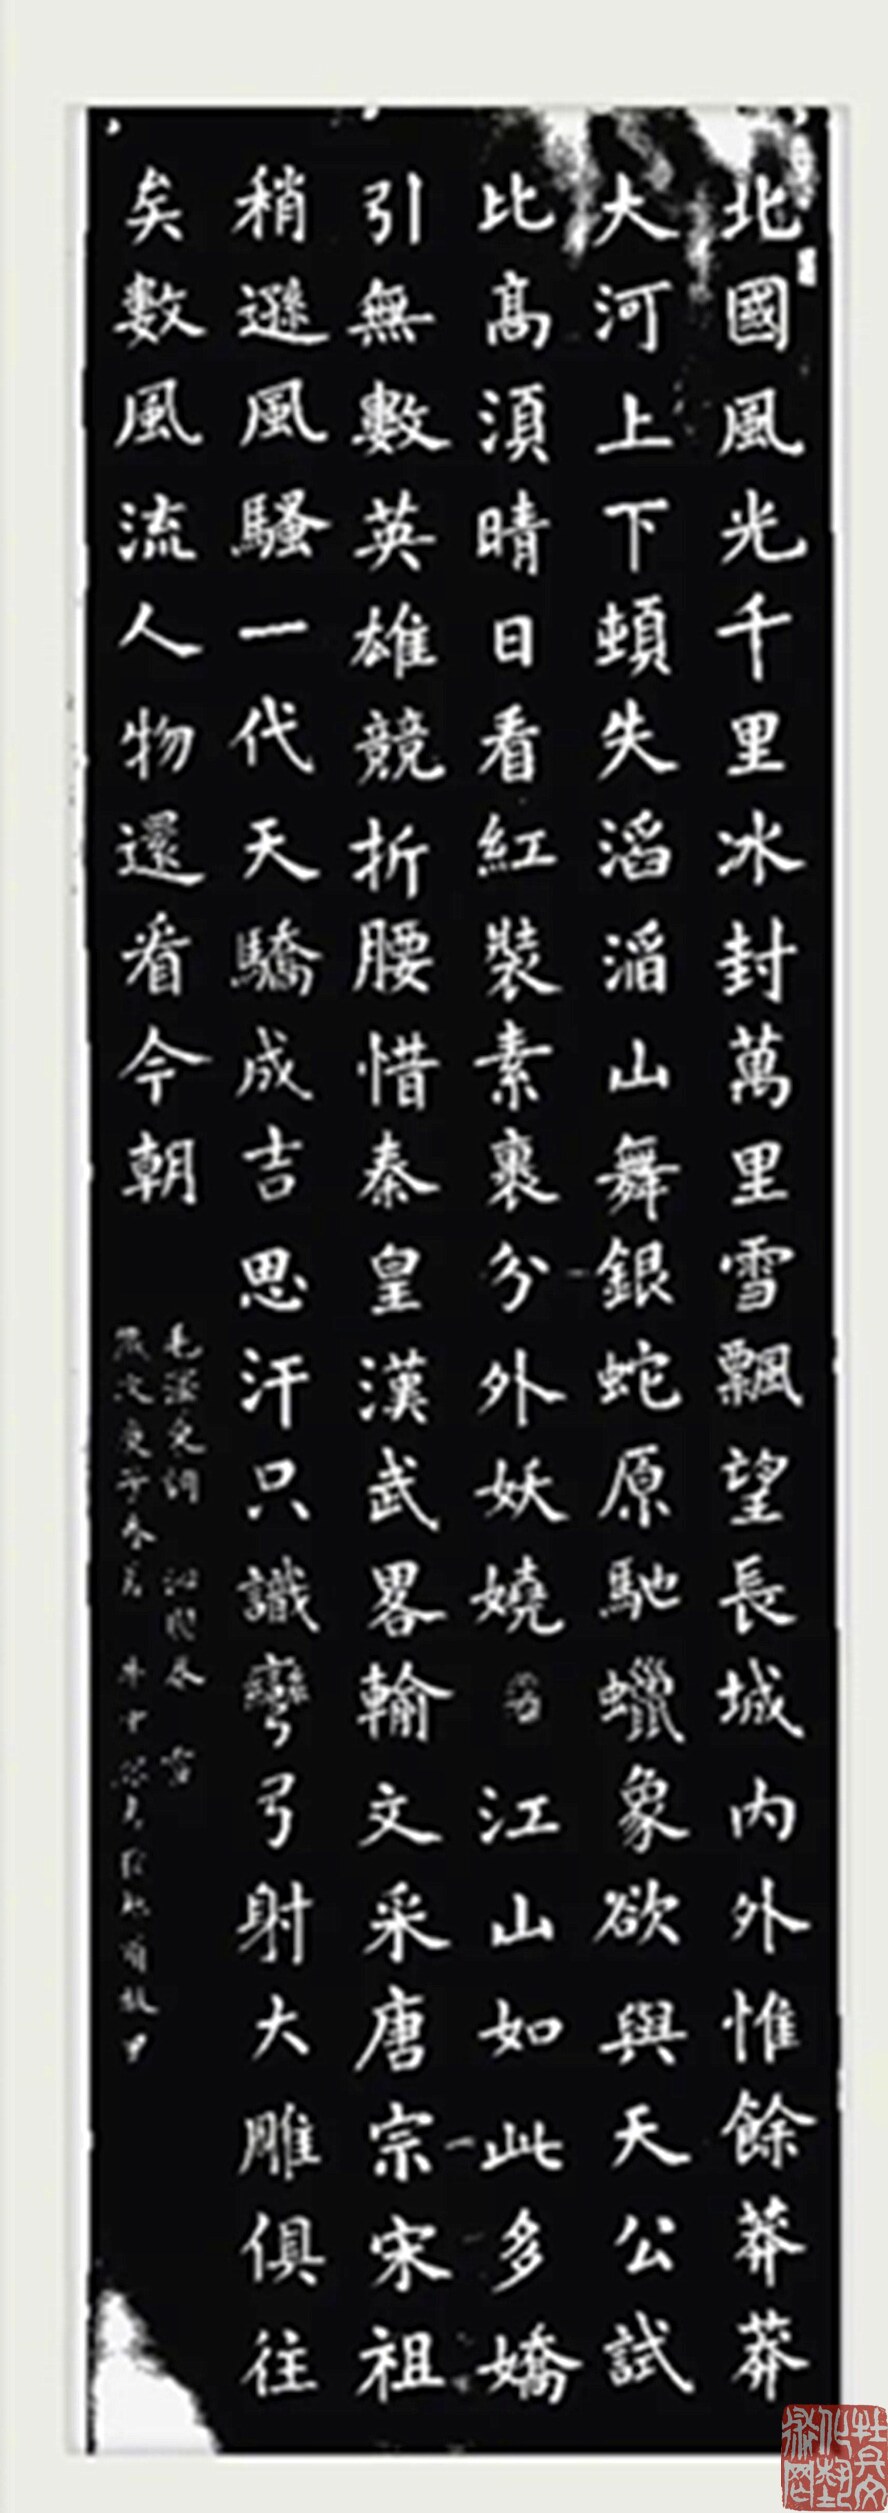 北國風光千里冰封萬里雪飄望長城內外惟餘莽莽
大河上下頓失滔滔山舞銀蛇原馳蠟象欲與天公試
比高須晴日看紅裝素裹分外妖嬈江山如此多嬌
引無數英雄競折腰惜秦皇漢武畧輸文采唐宗宋祖
稍遜風騷一代天驕成吉思汗只識彎弓射大雕俱往
矣數風流人物還看今朝
毛澤東詞 沁園春 雪
歲次庚子